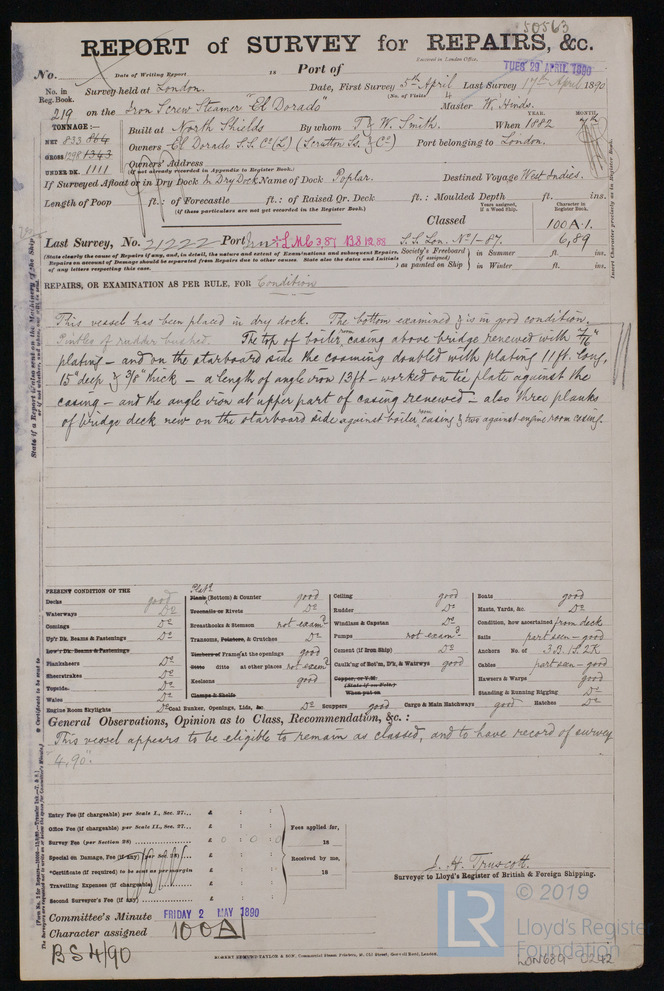 50563
REPORT of SURVEY for REPAIRS, &c.
Received in London Office,
No. Date of Writing Report 18 Port of TUES 29 APRIL 1890
No. in Reg. Book. Survey held at London. Date, First Survey 5th April Last Survey 17th April 1890
(No. of Visits 4
219 on the Iron Screw Steamer "El Dorado" Master W. Hinds.
TONNAGE:— YEAR. MONTH.
NET 833 864 Built at North Shields By whom T & W. Smith. When 1882 7th
GROSS 1298 1343 Owners El Dorado S.S. Co (L) (Scrutton Ss. & Co) Port belonging to London.
UNDER DK. 1111 Owners' Address
(if not already recorded in Appendix to Register Book.)
If Surveyed Afloat or in Dry Dock In Dry Dock Name of Dock Poplar. Destined Voyage West Indies.
Length of Poop ft.: of Forecastle ft.: of Raised Qr. Deck ft.: Moulded Depth ft. ins.
(if these particulars are not yet recorded in the Register Book.)
Years assigned, if a Wood Ship. Character in Register Book.
Classed 100A.1.
Last Survey, No. 21222 Port LMC 3,87 BS 12.88 S.S. Lon. No 1-87. 6,89
(State clearly the cause of Repairs if any, and, in detail, the nature and extent of Examinations and subsequent Repairs.
Repairs on account of Damage should be separated from Repairs due to other causes. State also the dates and Initials
of any letters respecting this case.
Society's Freeboard (if assigned) as painted on Ship in Summer ft. ins.
in Winter ft. ins.
REPAIRS, OR EXAMINATION AS PER RULE, FOR Condition
This vessel has been placed in dry dock. The bottom examined & is in good condition.
Pintles of rudder bushed. The top of boiler room casing above bridge renewed with 7/16"
plating - and on the starboard side the coaming doubled with plating 11ft. long,
15" deep & 3/8" thick - a length of angle iron 13ft - worked on tie plate against the
casing - and the angle iron at upper part of casing renewed - also three planks
of bridge deck new on the starboard side against boiler room casing & two against engine room casing.
PRESENT CONDITION OF THE
Decks good
Waterways Do
Comings Do
Up'r Dk. Beams & Fastenings Do
Low'r Dk. Beams & Fastenings
Planksheers Do
Sheerstrakes Do
Topside. Do
Wales Do
Engine Room Skylights Do
Plate
Plank (Bottom) & Counter good
Treenails or Rivets Do
Breasthooks & Stemson not exam d
Transoms, Pointers, & Crutches Do
Timbers of Frame at the openings good
Ditto ditto at other places not exam d
Keelsons good
Clamps & Shelfs
Coal Bunker, Openings, Lids, &c Do
Ceiling good
Rudder Do
Windlass & Capstan Do
Pumps not exam d
Cement (if Iron Ship) Do
Caulk'ng of Bot'm, D'k, & Watrwys good
Copper, or Y.M.
(State if on Felt.)
When put on
Scuppers good Cargo & Main Hatchways good
Boats good
Masts, Yards, &c. Do
Condition, how ascertained from deck
Sails part seen - good
Anchors No. of 3.B.1S.2K
Cables part seen - good
Hawsers & Warps good
Standing & Running Rigging Do
Hatches Do
General Observations, Opinion as to Class, Recommendation, &c. :
This vessel appears to be eligible to remain as classed, and to have record of survey
"4,90".
Entry Fee (if chargeable) per Scale I., Sec. 27... £ : :
Office Fee (if chargeable) per Scale II., Sec. 27... £ : :
Survey Fee (per Section 28) £ 0 : 0 : 0
Special on Damage, Fee (if any) (per Sec. 28) £ : :
*Certificate (if required) to be sent as per margin
Travelling Expenses (if chargeable) £ : :
Second Surveyor's Fee (if any) £ : :
Fees applied for,
18
Received by me,
18
J. H. Truscott.
Surveyor to Lloyd's Register of British & Foreign Shipping.
Committee's Minute FRIDAY 2 MAY 1890
Character assigned 100A1
BS 4/90
ROBERT EDMUND TAYLOR & SON, Commercial Steam Printers, 19, Old Street, Goswell Road, London.
LR
© 2019
Lloyd's Register
Foundation
LON689-0242